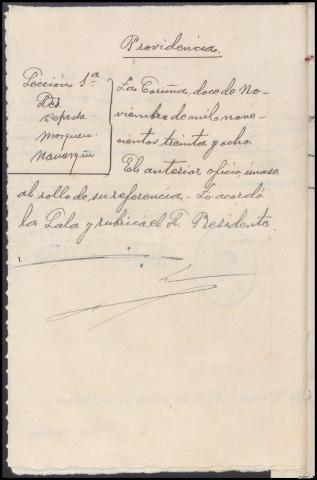 Providencia.
Sección 1ª
Cepeda
Mosquera
La Coruña, doce de No-
viembre de mil nove-
cientos treinta y ocho.
El anterior oficio únase
al rollo de su referencia.- Lo acordó
la Sala y rubrica el Sr. Presidente.